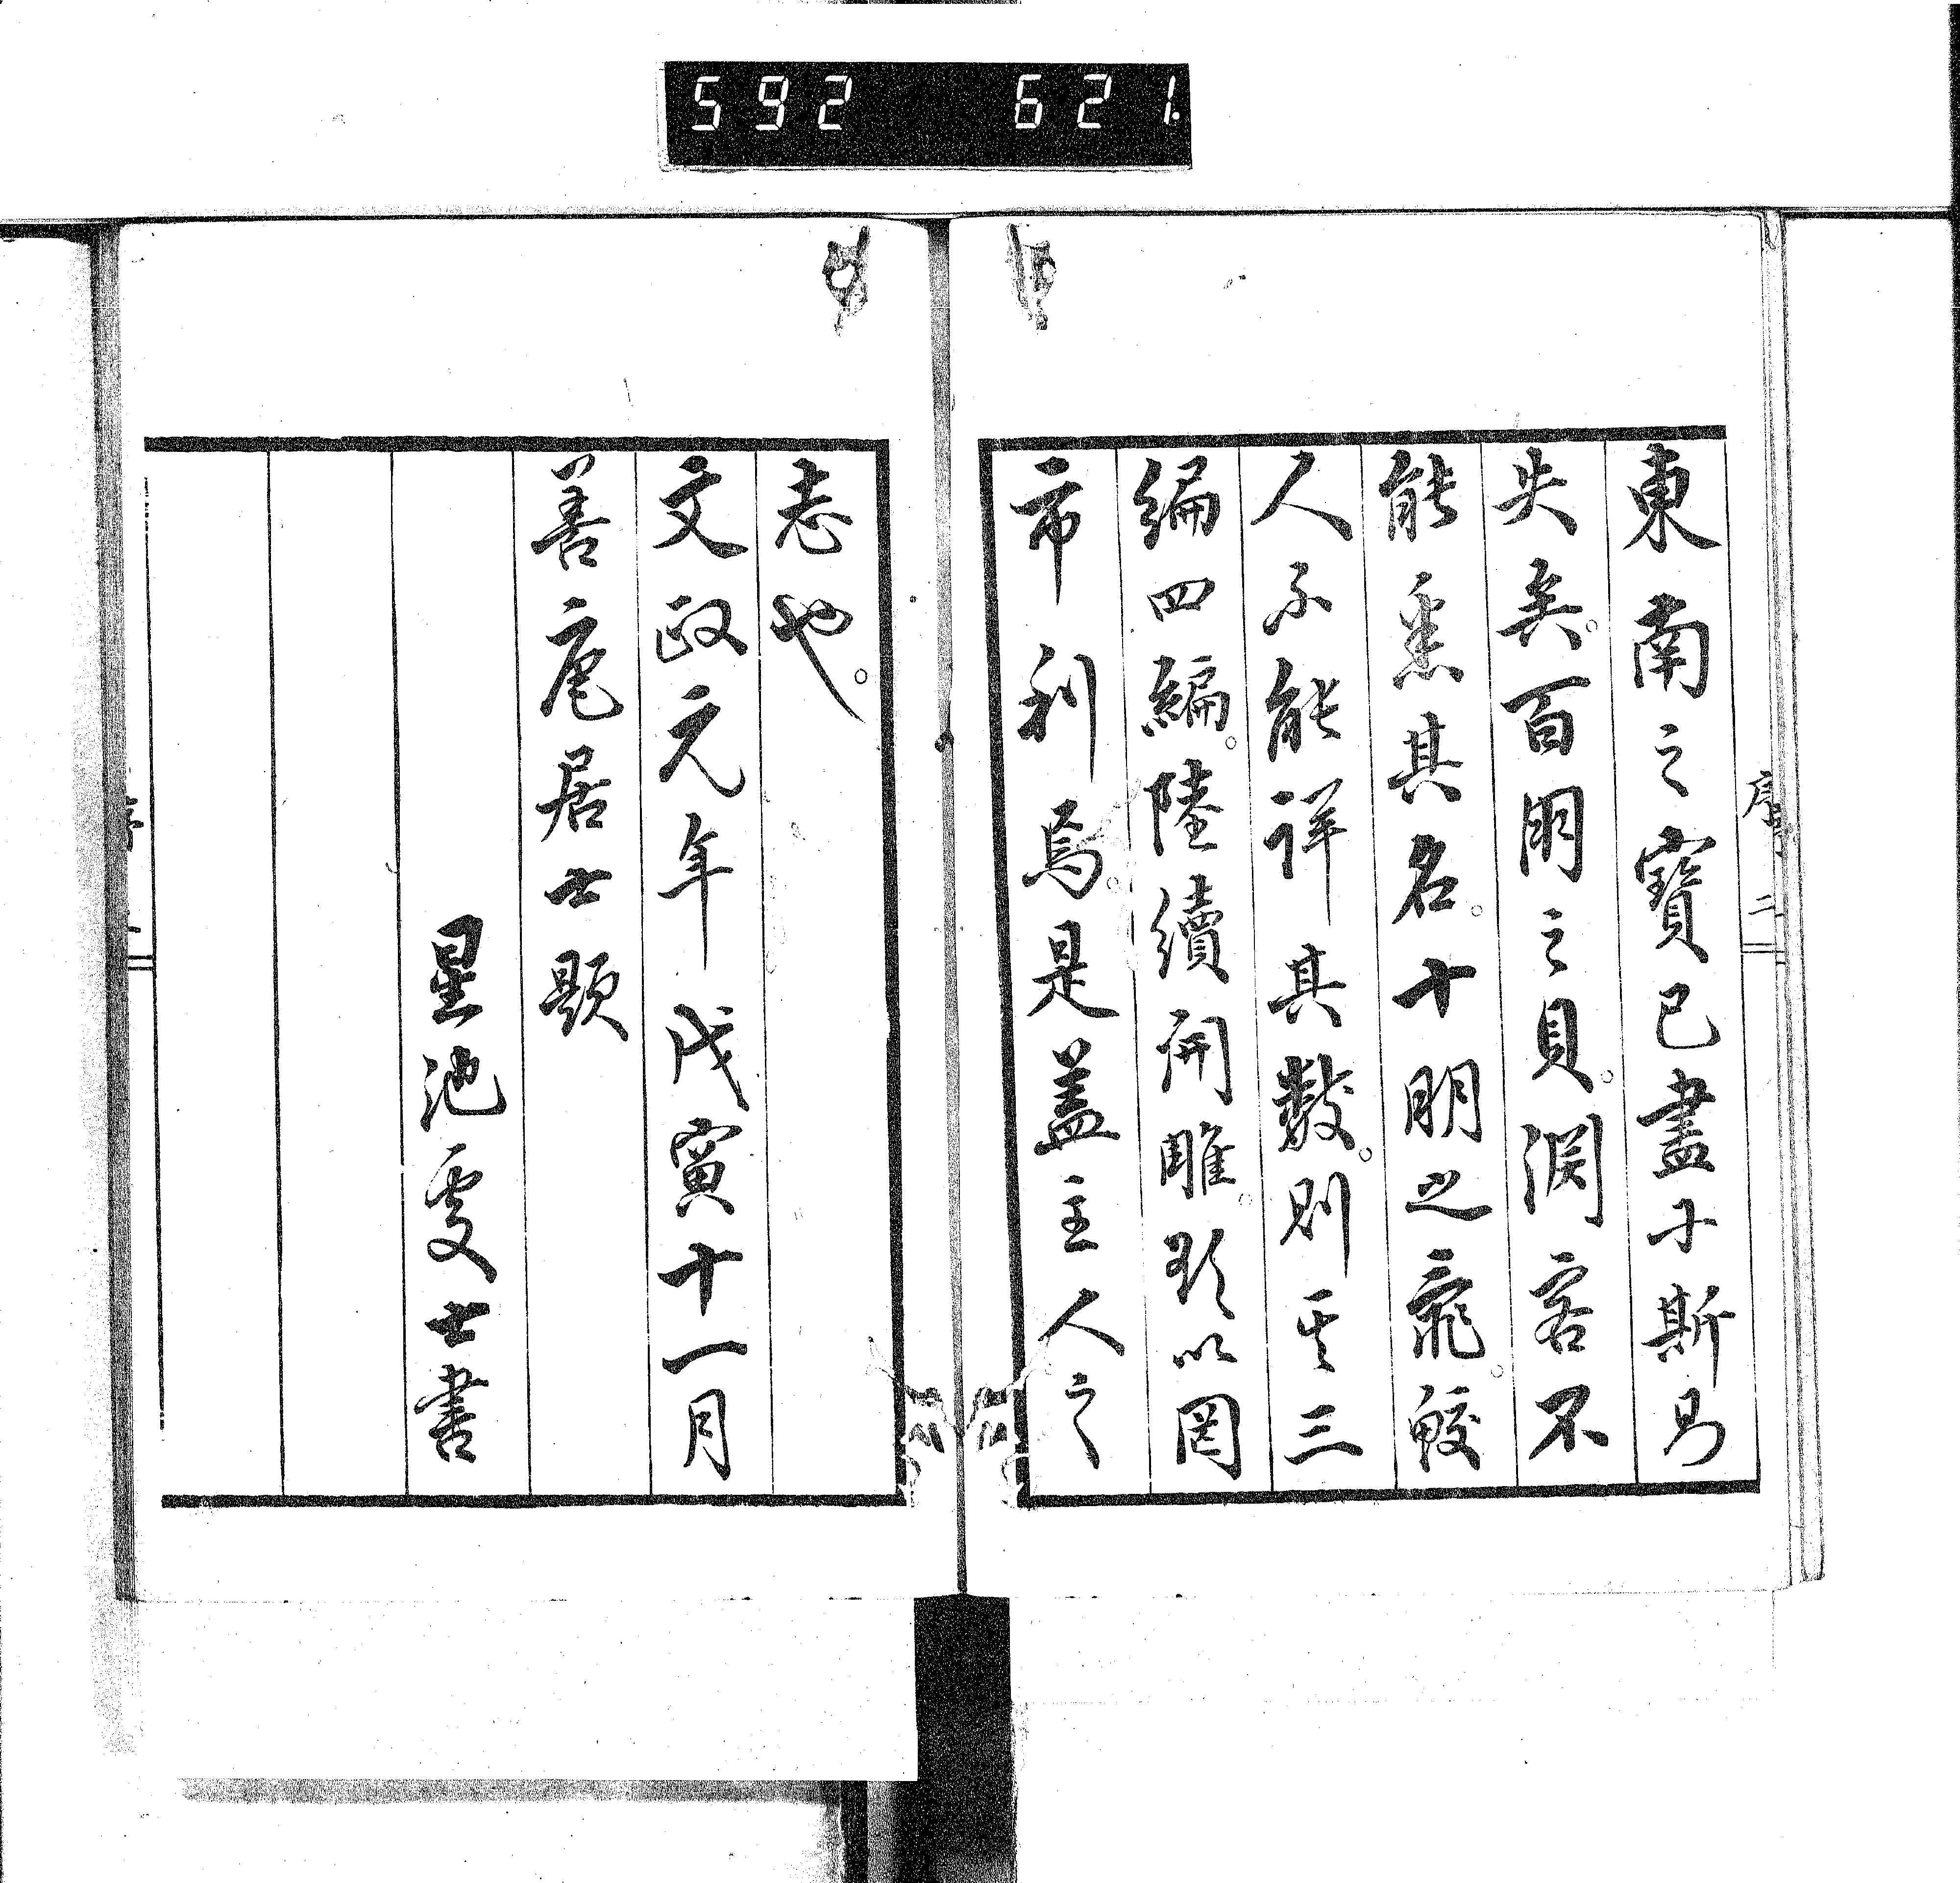 592 621
序 二
東南之寶已盡于斯局
失矣百朋之貝淵客不
能悉其名十朋之龜鮫
人不能詳其數則至三
編四編陸續開雕欲以罔
市利焉是蓋主人之
志也
文政元年戊寅十一月
善庵居士題
星池處士書